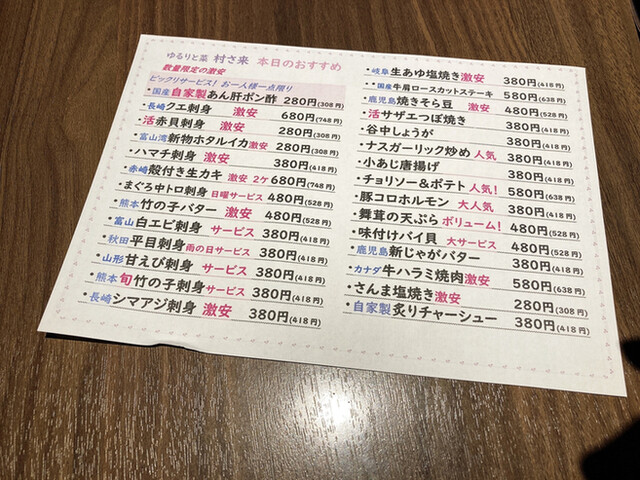 ゆるりと菜 村さ来 本日のおすすめ
数量限定の激安
ビックリサービス! お一人様一点限り
・国産自家製あん肝ポン酢 280円(308円)
・長崎クエ刺身 激安 680円(748円)
・活赤貝刺身 激安 280円(308円)
・富山湾新物ホタルイカ激安 280円(308円)
・ハマチ刺身 激安 380円(418円)
・赤崎殻付き生カキ 激安 2ケ 680円(748円)
・まぐろ中トロ刺身 日曜サービス 480円(528円)
・熊本竹の子バター 激安 480円(528円)
・富山白エビ刺身 サービス 380円(418円)
・秋田平目刺身雨の日サービス 380円(418円)
・山形甘えび刺身 サービス 380円(418円)
・熊本旬竹の子刺身サービス 380円(418円)
・長崎シマアジ刺身 激安 380円(418円)
・岐阜生あゆ塩焼き激安 380円(418円)
・国産牛肩ロースカットステーキ 580円(638円)
・鹿児島焼きそら豆 激安 480円(528円)
・活サザエつぼ焼き 380円(418円)
・谷中しょうが 380円(418円)
・ナスガーリック炒め 人気 380円(418円)
・小あじ唐揚げ 380円(418円)
・チョリソー&ポテト 人気! 580円(638円)
・豚コロホルモン 大人気 380円(418円)
・舞茸の天ぷら ボリューム! 480円(528円)
・味付けバイ貝 大サービス 480円(528円)
・鹿児島新じゃがバター 380円(418円)
・カナダ牛ハラミ焼肉激安 580円(638円)
・さんま塩焼き激安 280円(308円)
・自家製炙りチャーシュー 380円(418円)